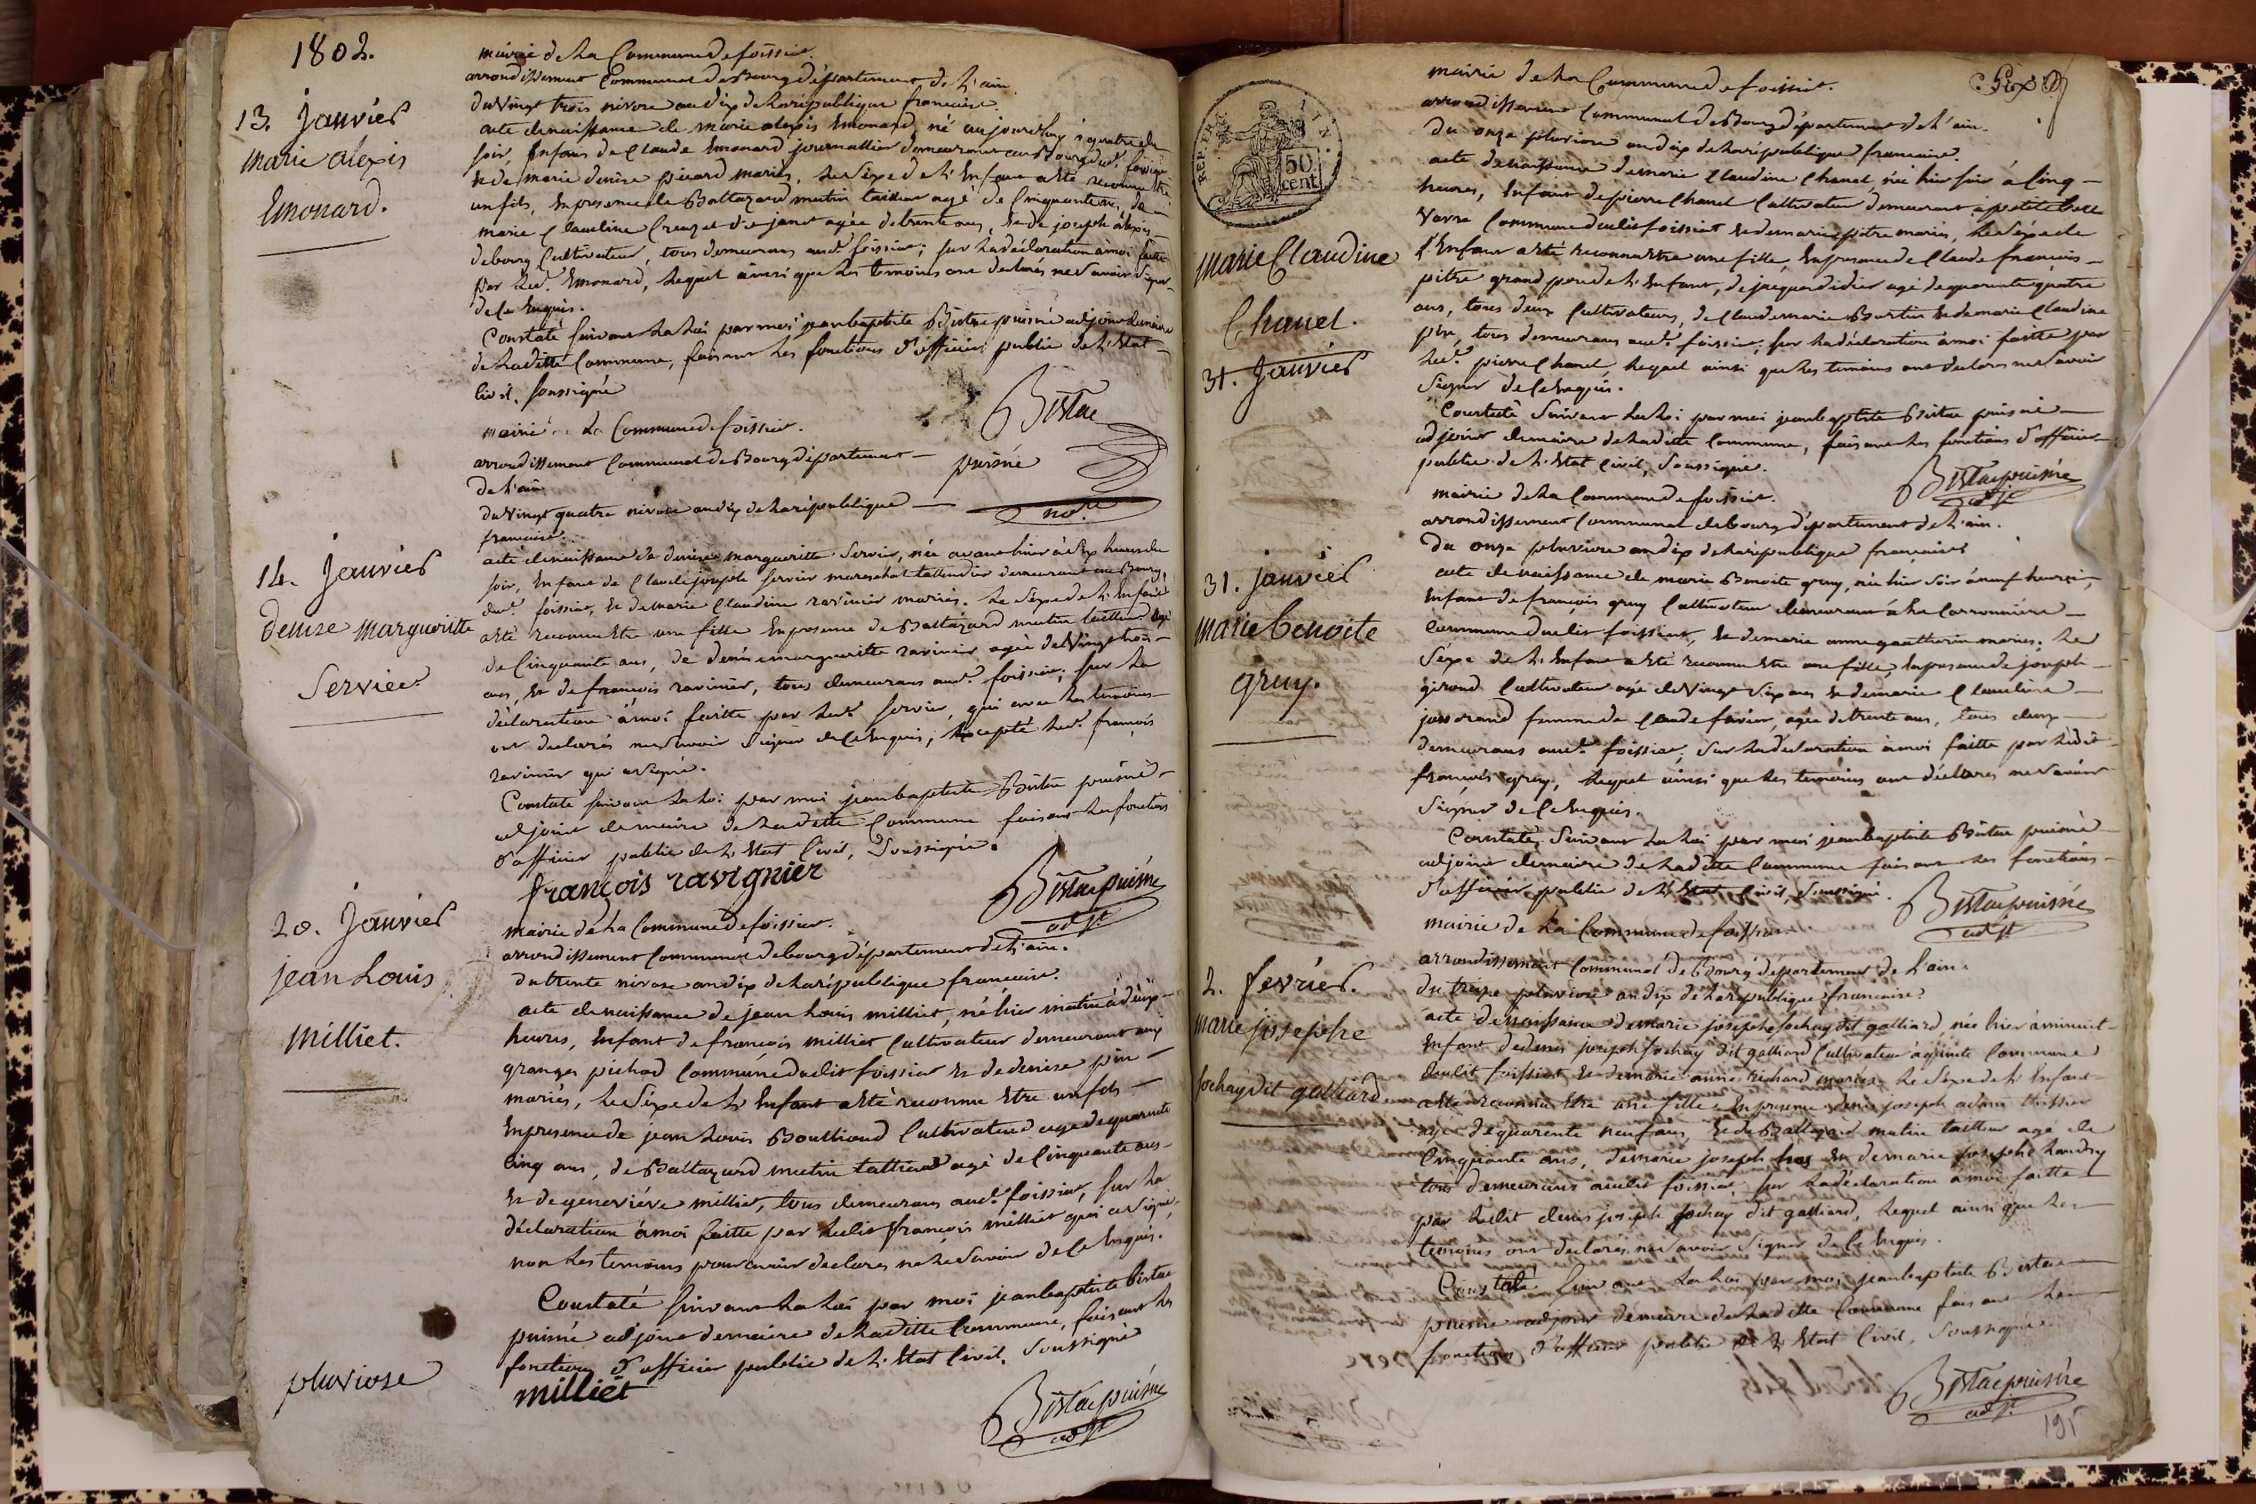 1802.
mairie de La Commune de foissiat
arrondissement Communal de Bourg département de L'ain
du vingt trois nivose an dix de La république francaise.
13. Janvier
marie alexis
Emonard.
acte de naissance de marie alexis Emonard, né aujourdhuy à quatre du
soir, Enfant de Claude Emonard journallier demeurant au Bourg dud. foissiat
et de marie denise picard mariés, Le sexe de L'Enfant a été reconnu être
un fils, En presence de Baltazard mutin tailleur agé de Cinquante ans, de
marie Claudine Creuzet die janet agée de trente ans, et de joseph alexis
debourg Cultivateur, tous demeurans aud. foissiat; sur La déclaration à moi faitte
par Led. Emonard, Lequel ainsi que Les temoins ont declarés ne savoir signer
de ce Enquis.
Constaté suivant La Loi par moi jean baptiste Bistac puisné adjoint de maire
de Laditte Commune, faisant Les fonctions d'officier public de L'Etat
Civil, soussigné
Bistac
puisné
mairie de La Commune de foissiat.
arrondissement Communal de Bourg département
de L'ain
du vingt quatre nivose an dix de La république
francaise.
14. Janvier
denise margueritte
Servier
acte de naissance de denise margueritte Servier, née avant hier à dix heures du
soir, Enfant de Claude joseph servier mareschal tallendier demeurant au Bourg
dud. foissiat, et de marie Claudine ravinier mariés. Le sexe de L'Enfant
a été reconnu être une fille En presence de Baltazard mutin tailleur agé
de Cinquante ans, de denise margueritte ravinier agée de vingt trois
ans, et de francois ravinier, tous demeurans aud. foissiat, sur La
déclaration à moi faitte par Led. servier, qui avec Les temoins
ont declarés ne savoir signer de ce Enquis, Excepté Led. françois
ravinier qui a signé.
Constaté suivant La Loi par moi jean baptiste Bistac puisné
adjoint de maire de Laditte Commune faisant Les fonctions
d'officier public de L'Etat Civil, Soussigné.
françois ravignier
Bistac puisné
adjt
mairie de La Commune de foissiat.
arrondissement Communal de bourg département de L'ain.
du trente nivose an dix de La république francaise.
20. Janvier
jean Louis
Milliet.
acte de naissance de jean Louis milliet, né hier matin à dix
heures, Enfant de francois milliet Cultivateur demeurant aux
granges pichod Commune dudit foissiat et de denise pin
mariés, Le sexe de L'Enfant a été reconnu Etre un fils
En presence de jean Louis Boullioud Cultivateur agé de quarante
cinq ans, de Baltazard mutin tailleur agé de Cinquante ans
et de geneviéve milliet, tous demeurans aud. foissiat, sur La
déclaration à moi faitte par Ledit francois milliet qui a signé,
non Les temoins pour avoir declarés ne Le savoir de ce Enquis.
Constaté suivant La Loi par moi jean baptiste bistac
puisné adjoint de maire de Laditte Commune, faisant Les
fonctions d'officier public de L'Etat Civil, Soussigné
milliet
Bistac puisné
adjt
pluviose
REP. FRA.
50
cent
mairie de La Commune de foissiat.
arrondissement Communal de Bourg département de L'ain.
du onze pluviose an dix de La république francaise.
Marie Claudine
Chanel.
31. Janvier
acte de naissance de marie Claudine Chanel, née hier soir à Cinq
heures, Enfant de pierre Chanel Cultivateur demeurant à petite belle
vavre Commune dudit foissiat et de marie pitre mariés, Le sexe de
L'Enfant a été reconnu Etre une fille, En presence de Claude francois
pitre grand pere de L'Enfant, de jacques didier agé de quarante quatre
ans, tous deux Cultivateurs, de Claude marie Burtin et de marie Claudine
pin, tous demeurans aud. foissiat; sur La déclaration à moi faitte par
Led. pierre Chanel, Lequel ainsi que Les temoins ont declarés ne savoir
Signer de ce Enquis.
Constaté suivant La Loi par moi jean baptiste Bistac puisné
adjoint de maire de Laditte Commune, faisant Les fonctions d'officier
public de L'Etat Civil, Soussigné.
Bistac puisné
adjt
mairie de La Commune de foissiat.
arrondissement Communal de bourg département de L'ain.
du onze pluviose an dix de La république francaise
31. janvier
Marie benoite
gruy.
acte de naissance de marie Benoite gruy, née hier soir à neuf heures,
Enfant de françois gruy Cultivateur demeurant à La Carronniére
Commune dudit foissiat, et de marie anne gautherin mariés. Le
Sexe de L'Enfant a été reconnu Etre une fille, En presence de joseph
girond Cultivateur agé de vingt six ans et de marie Claudine
josserand femme de Claude favier, agée de trente ans, tous deux
demeurans aud. foissiat; sur La declaration à moi faitte par Ledit
francois gruy, Lequel ainsi que Les temoins ont déclarés ne savoir
signer de ce Enquis.
Constaté, Suivant La Loi par moi jean baptiste Bistac puisné
adjoint de maire de Laditte Commune faisant Les fonctions
d'officier public de L'Etat Civil, Soussigné.
Bistac puisné
adjt
mairie de La Commune de foissiat
arrondissement Communal de Bourg département de L'ain.
du treize pluviose an dix de La république francaise
2. fevrier.
marie josephe
fochay dit galliard
acte de naissance de marie josephe fochay dit galliard, née hier à minuit
Enfant de denis joseph fochay dit galliard Cultivateur Commune
dudit foissiat et de marie anne richard mariés. Le sexe de L'Enfant
a été reconnu Etre une fille En presence de joseph adam
agé de quarante neuf ans, et de Baltazard mutin tailleur agé de
Cinquante ans, de marie joseph et de marie josephe Landry
tous demeurans audit foissiat, sur La déclaration à moi faitte
par Ledit denis joseph fochay dit galliard, Lequel ainsi que Les
temoins ont declarés ne savoir Signer de ce Enquis.
Constaté suivant La Loi par moi jean baptiste Bistac
puisné adjoint de maire de Laditte Commune faisant Les
fonctions d'officier public de L'Etat Civil, Soussigné.
Bistac puisné
adjt
195